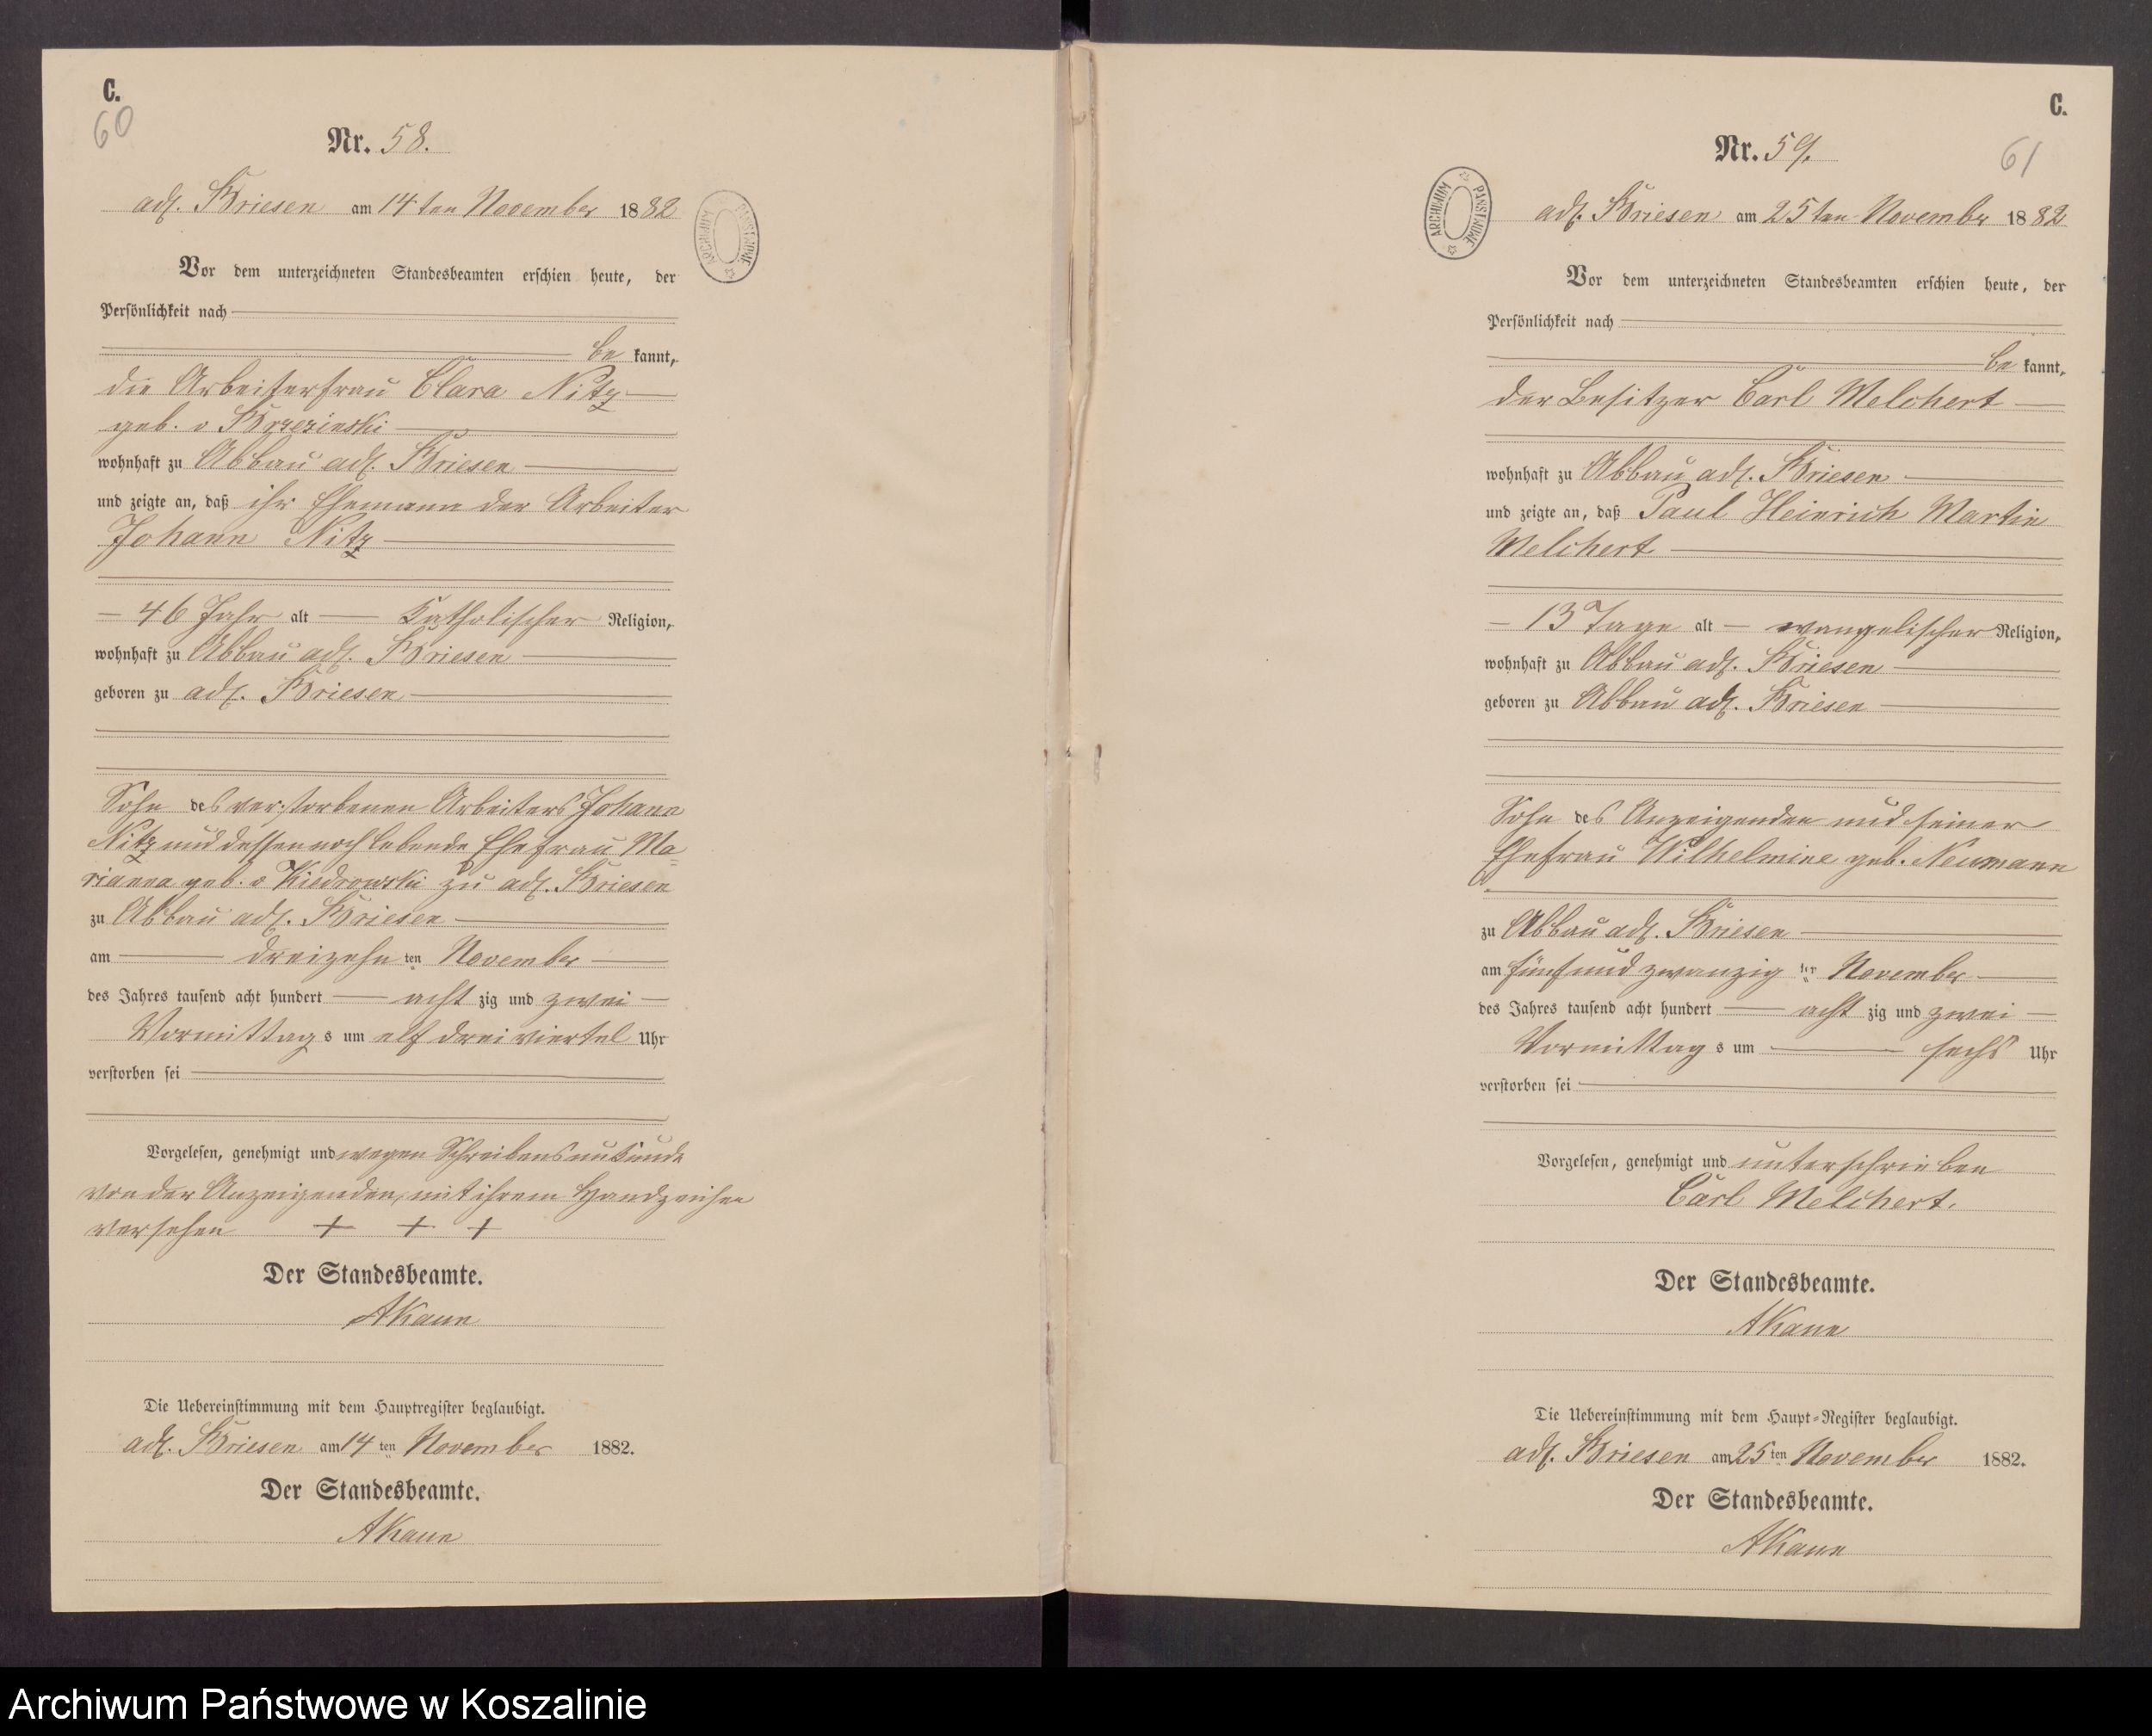 C.
60
Nr. 58.
adl. Briesen am 14 ten November 1882
ARCHIWUM PAŃSTWOWE
Vor dem unterzeichneten Standesbeamten erschien heute, der
Persönlichkeit nach
be kannt,
die Arbeiterfrau Clara Nitz
geb. v Brzezinski
wohnhaft zu Abbau adl. Briesen
und zeigte an, daß ihr Ehemann der Arbeiter
Johann Nitz
46 Jahr alt katholischer Religion,
wohnhaft zu Abbau adl. Briesen
geboren zu adl. Briesen
Sohn des verstorbenen Arbeiters Johann
Nitz und dessen noch lebende Ehefrau Ma=
rianna geb. v Kiedrowski zu adl. Briesen
zu Abbau adl. Briesen
am dreizehn ten November
des Jahres tausend acht hundert acht zig und zwei
Vormittag s um elf drei viertel Uhr
verstorben sei
Vorgelesen, genehmigt und wegen Schreibensunkunde
von der Anzeigenden, mit ihrem Handzeichen
versehen + + +
Der Standesbeamte.
AKaun
Die Uebereinstimmung mit dem Hauptregister beglaubigt.
adl. Briesen am 14 ten November 1882.
Der Standesbeamte.
AKaun
C.
61
Nr. 59.
ARCHIWUM PAŃSTWOWE
adl. Briesen am 25 ten November 1882
Vor dem unterzeichneten Standesbeamten erschien heute, der
Persönlichkeit nach
be kannt,
der Besitzer Carl Melchert
wohnhaft zu Abbau adl. Briesen
und zeigte an, daß Paul Heinrich Martin
Melchert
13 Tage alt evangelischer Religion,
wohnhaft zu Abbau adl. Briesen
geboren zu Abbau adl. Briesen
Sohn des Anzeigenden und seiner
Ehefrau Wilhelmine geb. Neumann
zu Abbau adl. Briesen
am fünf und zwanzig ten November
des Jahres tausend acht hundert acht zig und zwei
Vormittag s um sechs Uhr
verstorben sei
Vorgelesen, genehmigt und unterschrieben
Carl Melchert.
Der Standesbeamte.
AKaun
Die Uebereinstimmung mit dem Haupt-Register beglaubigt.
adl. Briesen am 25 ten November 1882.
Der Standesbeamte.
AKaun
Archiwum Państwowe w Koszalinie